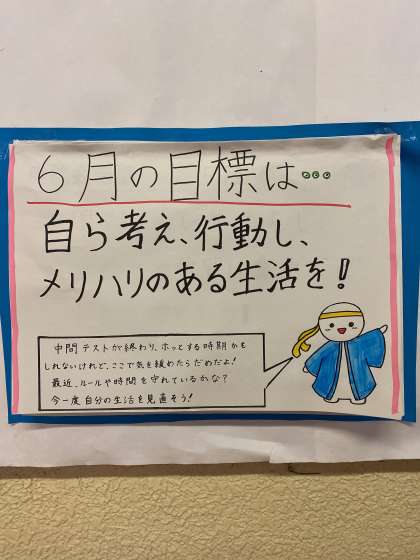 6月の目標は…
自ら考え、行動し、
メリハリのある生活を!
中間テストが終わり、ホッとする時期かも
しれないけれど、ここで気を緩めたらだめだよ!
最近、ルールや時間を守れているかな?
今一度自分の生活を見直そう!